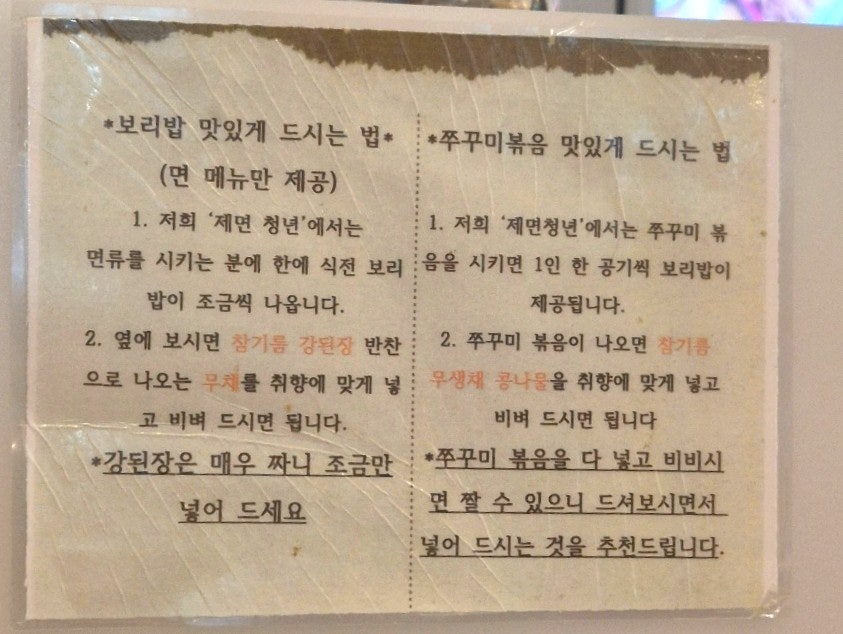 *보리밥 맛있게 드시는 법*
(면 메뉴만 제공)
1. 저희 '제면 청년'에서는
면류를 시키는 분에 한에 식전 보리
밥이 조금씩 나옵니다.
2. 옆에 보시면 참기름 강된장 반찬
으로 나오는 무채를 취향에 맞게 넣
고 비벼 드시면 됩니다.
*강된장은 매우 짜니 조금만
넣어 드세요
*쭈꾸미볶음 맛있게 드시는 법
1. 저희 '제면청년'에서는 쭈꾸미 볶
음을 시키면 1인 한 공기씩 보리밥이
제공됩니다.
2. 쭈꾸미 볶음이 나오면 참기름
무생채 콩나물을 취향에 맞게 넣고
비벼 드시면 됩니다
*쭈꾸미 볶음을 다 넣고 비비시
면 짤 수 있으니 드셔보시면서
넣어 드시는 것을 추천드립니다.